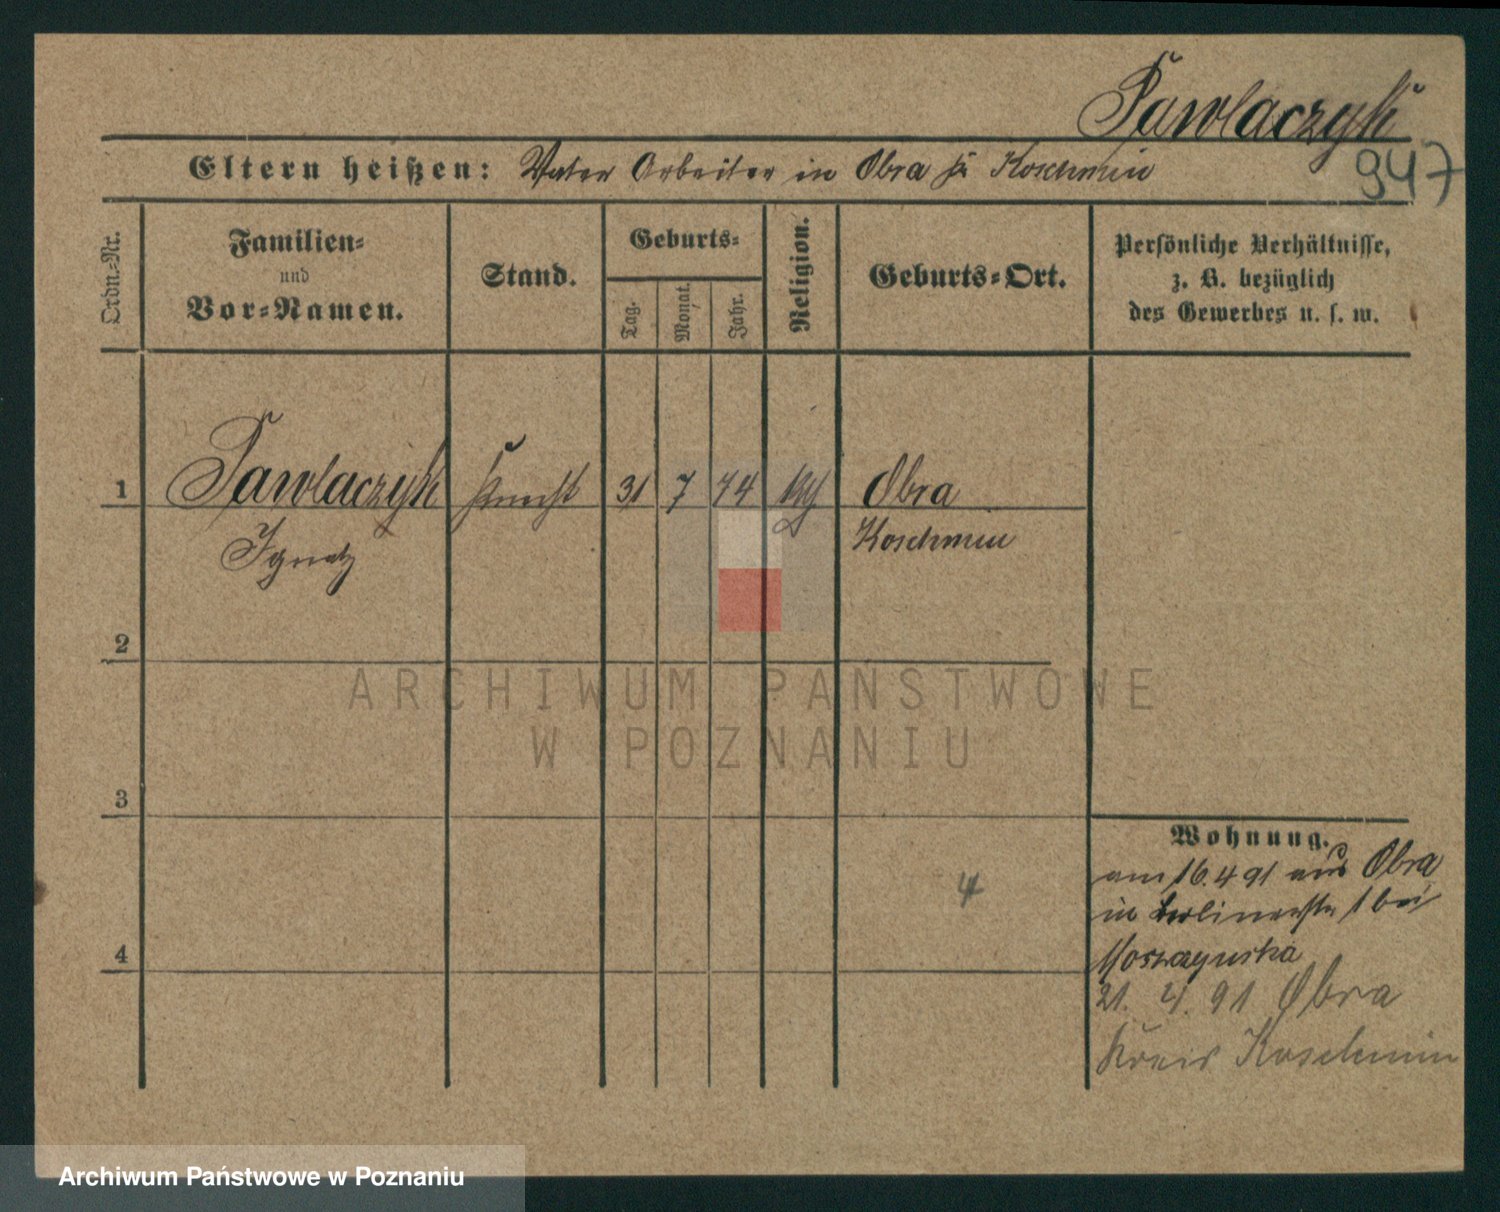 Pawlaczyk
947
Eltern heißen: Vater Arbeiter in Obra Koschmin
Ordn.-Nr.
Familien- und Vor-Namen.
Stand.
Geburts-
Tag.
Monat.
Jahr.
Religion.
Geburts-Ort.
Persönliche Verhältnisse,
z. B. bezüglich
des Gewerbes u. s. w.
1 Pawlaczyk Knecht 31 7 74 Obra
Ignatz Koschmin
2
3
4
4
Wohnung.
am 16.4 91 aus Obra
in Berlinerstr 1 bei
21. 4. 91 Obra
Kreis Koschmin
ARCHIWUM PAŃSTWOWE
W POZNANIU
Archiwum Państwowe w Poznaniu